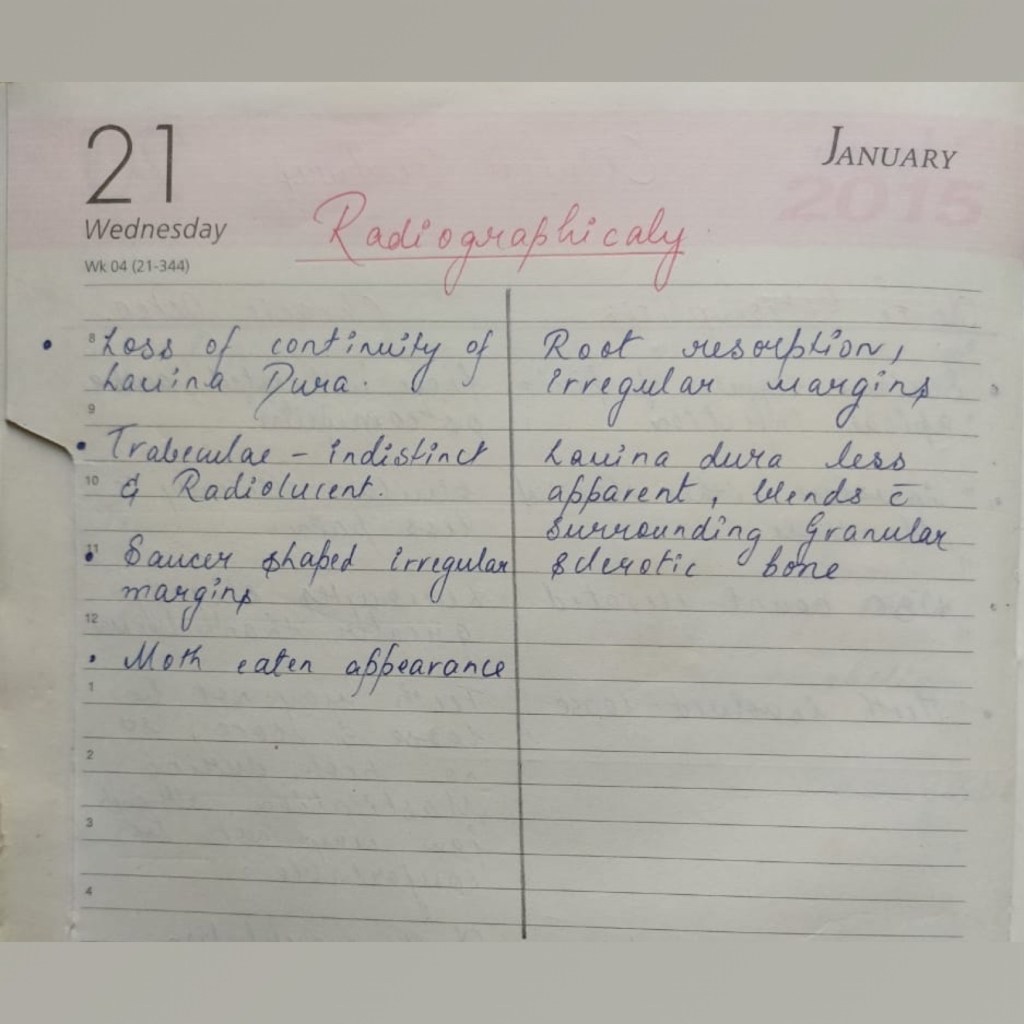 21
January
2015
Wednesday
Wk 04 (21-344)
Radiographicaly
8
• Loss of continuity of
Lamina Dura.
9
• Trabeculae - indistinct
10
& Radiolucent.
11
• Saucer shaped irregular
margins
12
• Moth eaten appearance
1
2
3
4
Root resorption,
irregular margins
Lamina dura less
apparent, blends c̄
surrounding Granular
sclerotic bone